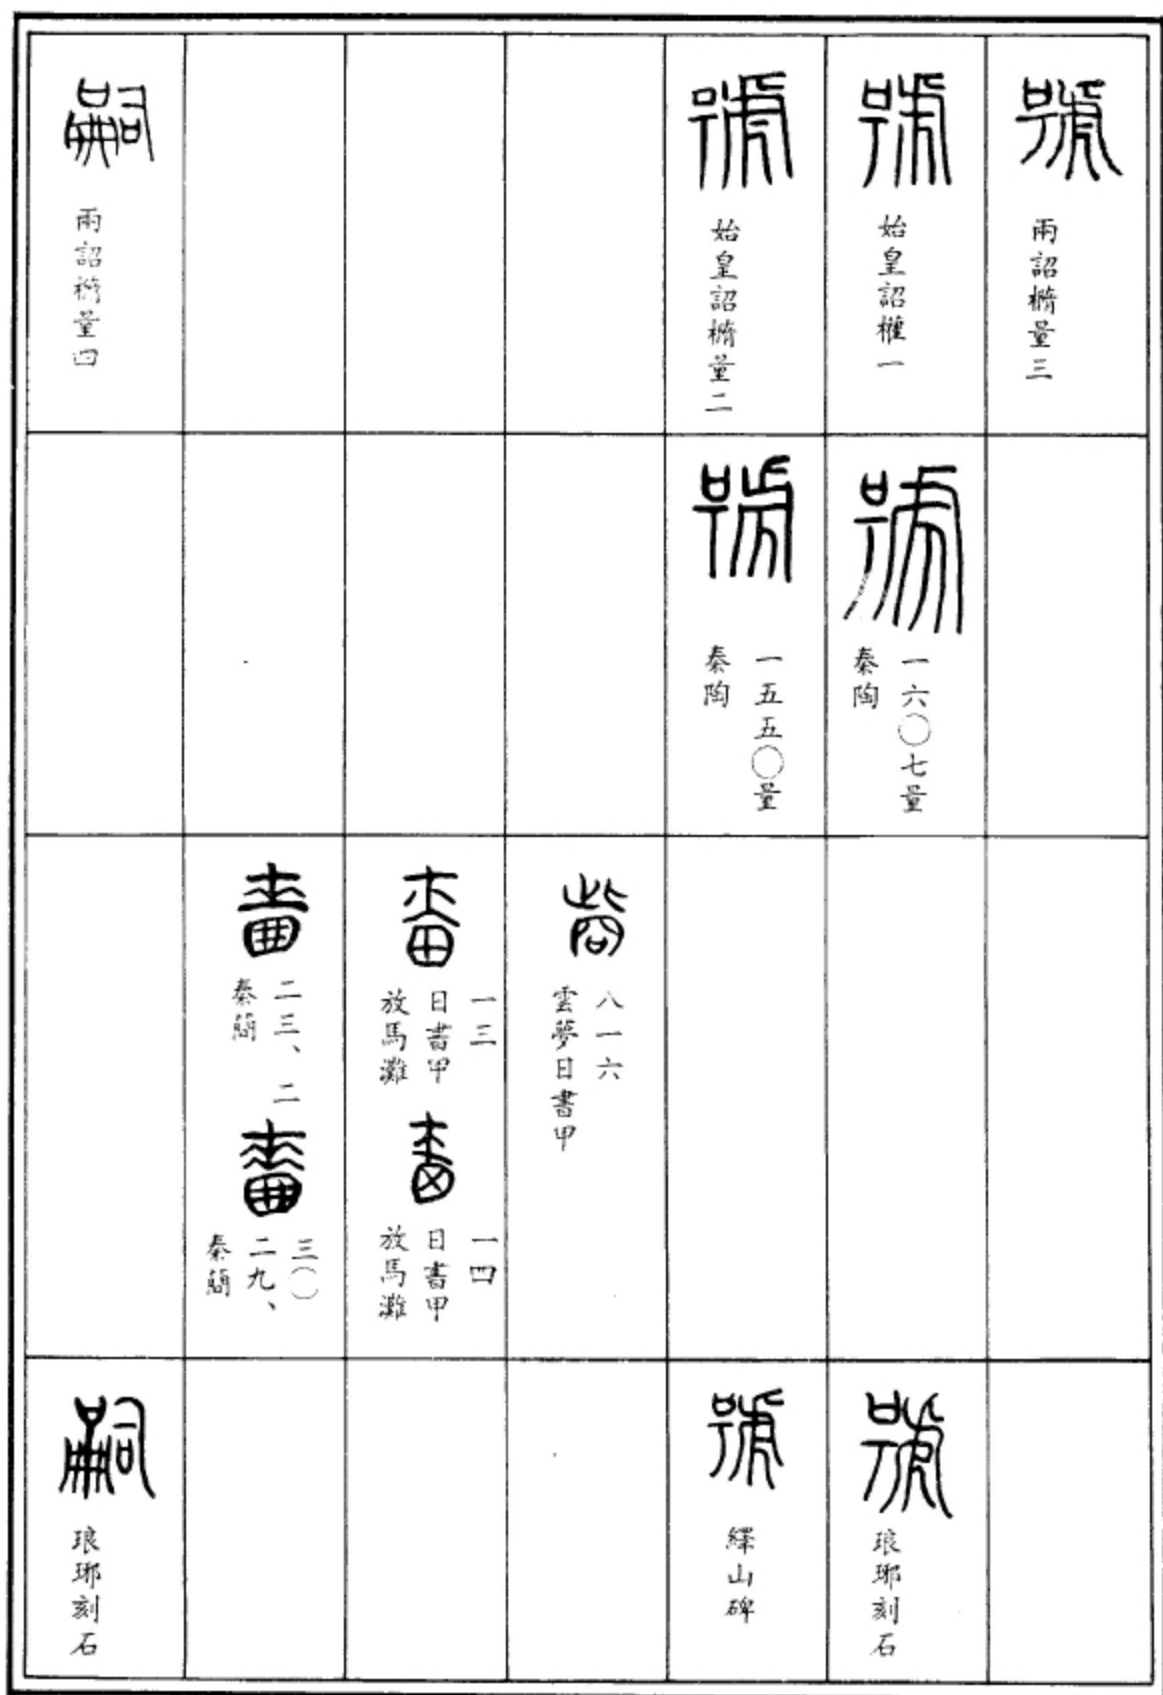 號
兩詔橢量三
號
始皇詔權一
號
始皇詔橢量二
嗣
兩詔橢量四
號
秦陶
一六〇七量
號
秦陶
一五五〇量
八一六
雲夢日書甲
一三
日書甲
放馬灘
一四
日書甲
放馬灘
二三、二
秦簡
三〇
二九、
秦簡
號
琅琊刻石
號
繹山碑
嗣
琅琊刻石